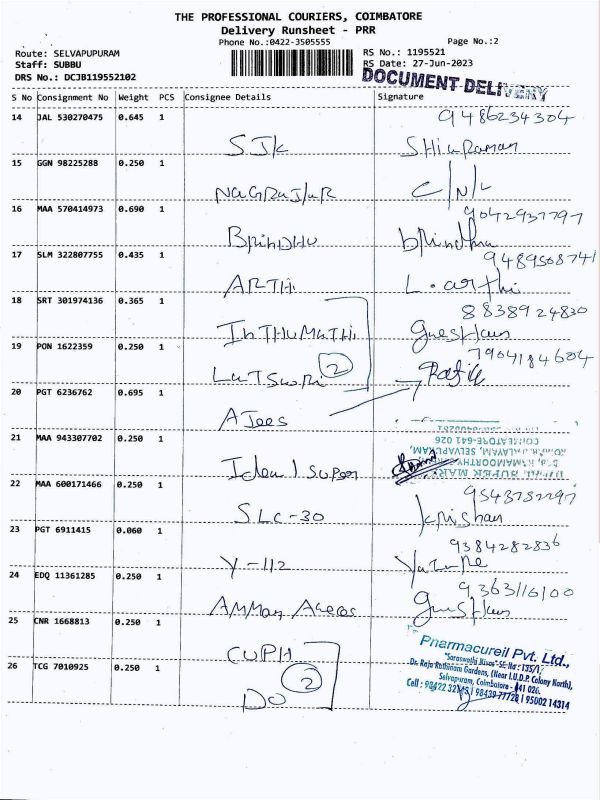 THE PROFESSIONAL COURIERS, COIMBATORE
Delivery Runsheet - PRR
Phone No.:0422-3505555
Page No.:2
Route: SELVAPUPURAM
RS No.: 1195521
Staff: SUBBU
RS Date: 27-Jun-2023
DRS No.: DCJB119552102
DOCUMENT DELIVERY
S No Consignment No Weight PCS Consignee Details Signature
14 JAL 530270475 0.645 1
9486234304
SJK
15 GGN 98225288 0.250 1
C/N/L
16 MAA 570414973 0.690 1
9042937797
BRINDHU brindhu
17 SLM 322807755 0.435 1
ARTHI L. arthi
18 SRT 301974136 0.365 1
8838924830
INTHUMATHI
19 PON 1622359 0.250 1
7904184604
2
20 PGT 6236762 0.695 1
AJees
21 MAA 943307702 0.250 1
COIMBATORE-641 026
Ideal Super
22 MAA 600171466 0.250 1
SLC-30 Krishan
23 PGT 6911415 0.060 1
9384282836
Y-112
24 EDQ 11361285 0.250 1
9363116100
25 CNR 1668813 0.250 1
CUPH
26 TCG 7010925 0.250 1
2
DO
Pharmacureil Pvt. Ltd.,
"Saraswathi Nivas" SF. No : 135/1,
Dr. Raja Rathinam Gardens, (Near I.U.D.P. Colony North),
Selvapuram, Coimbatore - 641 026.
98439 77728 | 95002 14314